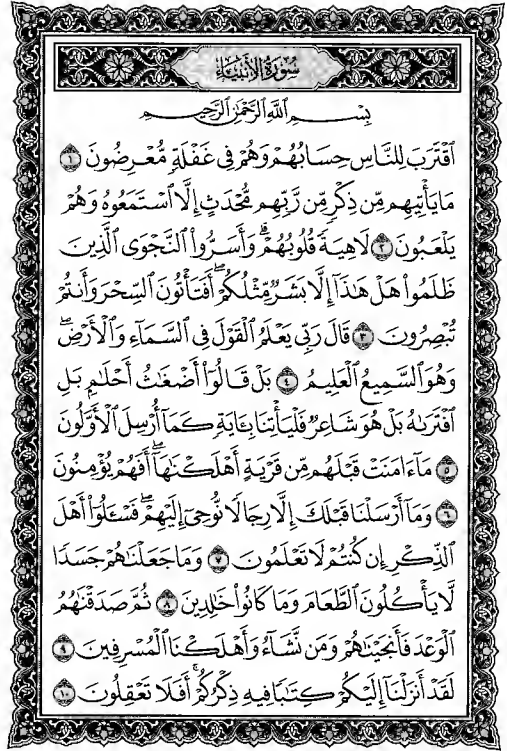 سُورَةُ الأَنبِيَاءِ
بِسْمِ ٱللَّهِ ٱلرَّحْمَٰنِ ٱلرَّحِيمِ
ٱقْتَرَبَ لِلنَّاسِ حِسَابُهُمْ وَهُمْ فِى غَفْلَةٍ مُّعْرِضُونَ ١
مَا يَأْتِيهِم مِّن ذِكْرٍ مِّن رَّبِّهِم مُّحْدَثٍ إِلَّا ٱسْتَمَعُوهُ وَهُمْ
يَلْعَبُونَ ٢ لَاهِيَةً قُلُوبُهُمْ ۗ وَأَسَرُّوا۟ ٱلنَّجْوَى ٱلَّذِينَ
ظَلَمُوا۟ هَلْ هَٰذَآ إِلَّا بَشَرٌ مِّثْلُكُمْ ۖ أَفَتَأْتُونَ ٱلسِّحْرَ وَأَنتُمْ
تُبْصِرُونَ ٣ قَالَ رَبِّى يَعْلَمُ ٱلْقَوْلَ فِى ٱلسَّمَآءِ وَٱلْأَرْضِ ۖ
وَهُوَ ٱلسَّمِيعُ ٱلْعَلِيمُ ٤ بَلْ قَالُوٓا۟ أَضْغَٰثُ أَحْلَٰمٍ بَلِ
ٱفْتَرَىٰهُ بَلْ هُوَ شَاعِرٌ فَلْيَأْتِنَا بِـَٔايَةٍ كَمَآ أُرْسِلَ ٱلْأَوَّلُونَ
٥ مَآ ءَامَنَتْ قَبْلَهُم مِّن قَرْيَةٍ أَهْلَكْنَٰهَآ ۖ أَفَهُمْ يُؤْمِنُونَ
٦ وَمَآ أَرْسَلْنَا قَبْلَكَ إِلَّا رِجَالًا نُّوحِىٓ إِلَيْهِمْ ۖ فَسْـَٔلُوٓا۟ أَهْلَ
ٱلذِّكْرِ إِن كُنتُمْ لَا تَعْلَمُونَ ٧ وَمَا جَعَلْنَٰهُمْ جَسَدًا
لَّا يَأْكُلُونَ ٱلطَّعَامَ وَمَا كَانُوا۟ خَٰلِدِينَ ٨ ثُمَّ صَدَقْنَٰهُمُ
ٱلْوَعْدَ فَأَنجَيْنَٰهُمْ وَمَن نَّشَآءُ وَأَهْلَكْنَا ٱلْمُسْرِفِينَ ٩
لَقَدْ أَنزَلْنَآ إِلَيْكُمْ كِتَٰبًا فِيهِ ذِكْرُكُمْ ۖ أَفَلَا تَعْقِلُونَ ١٠